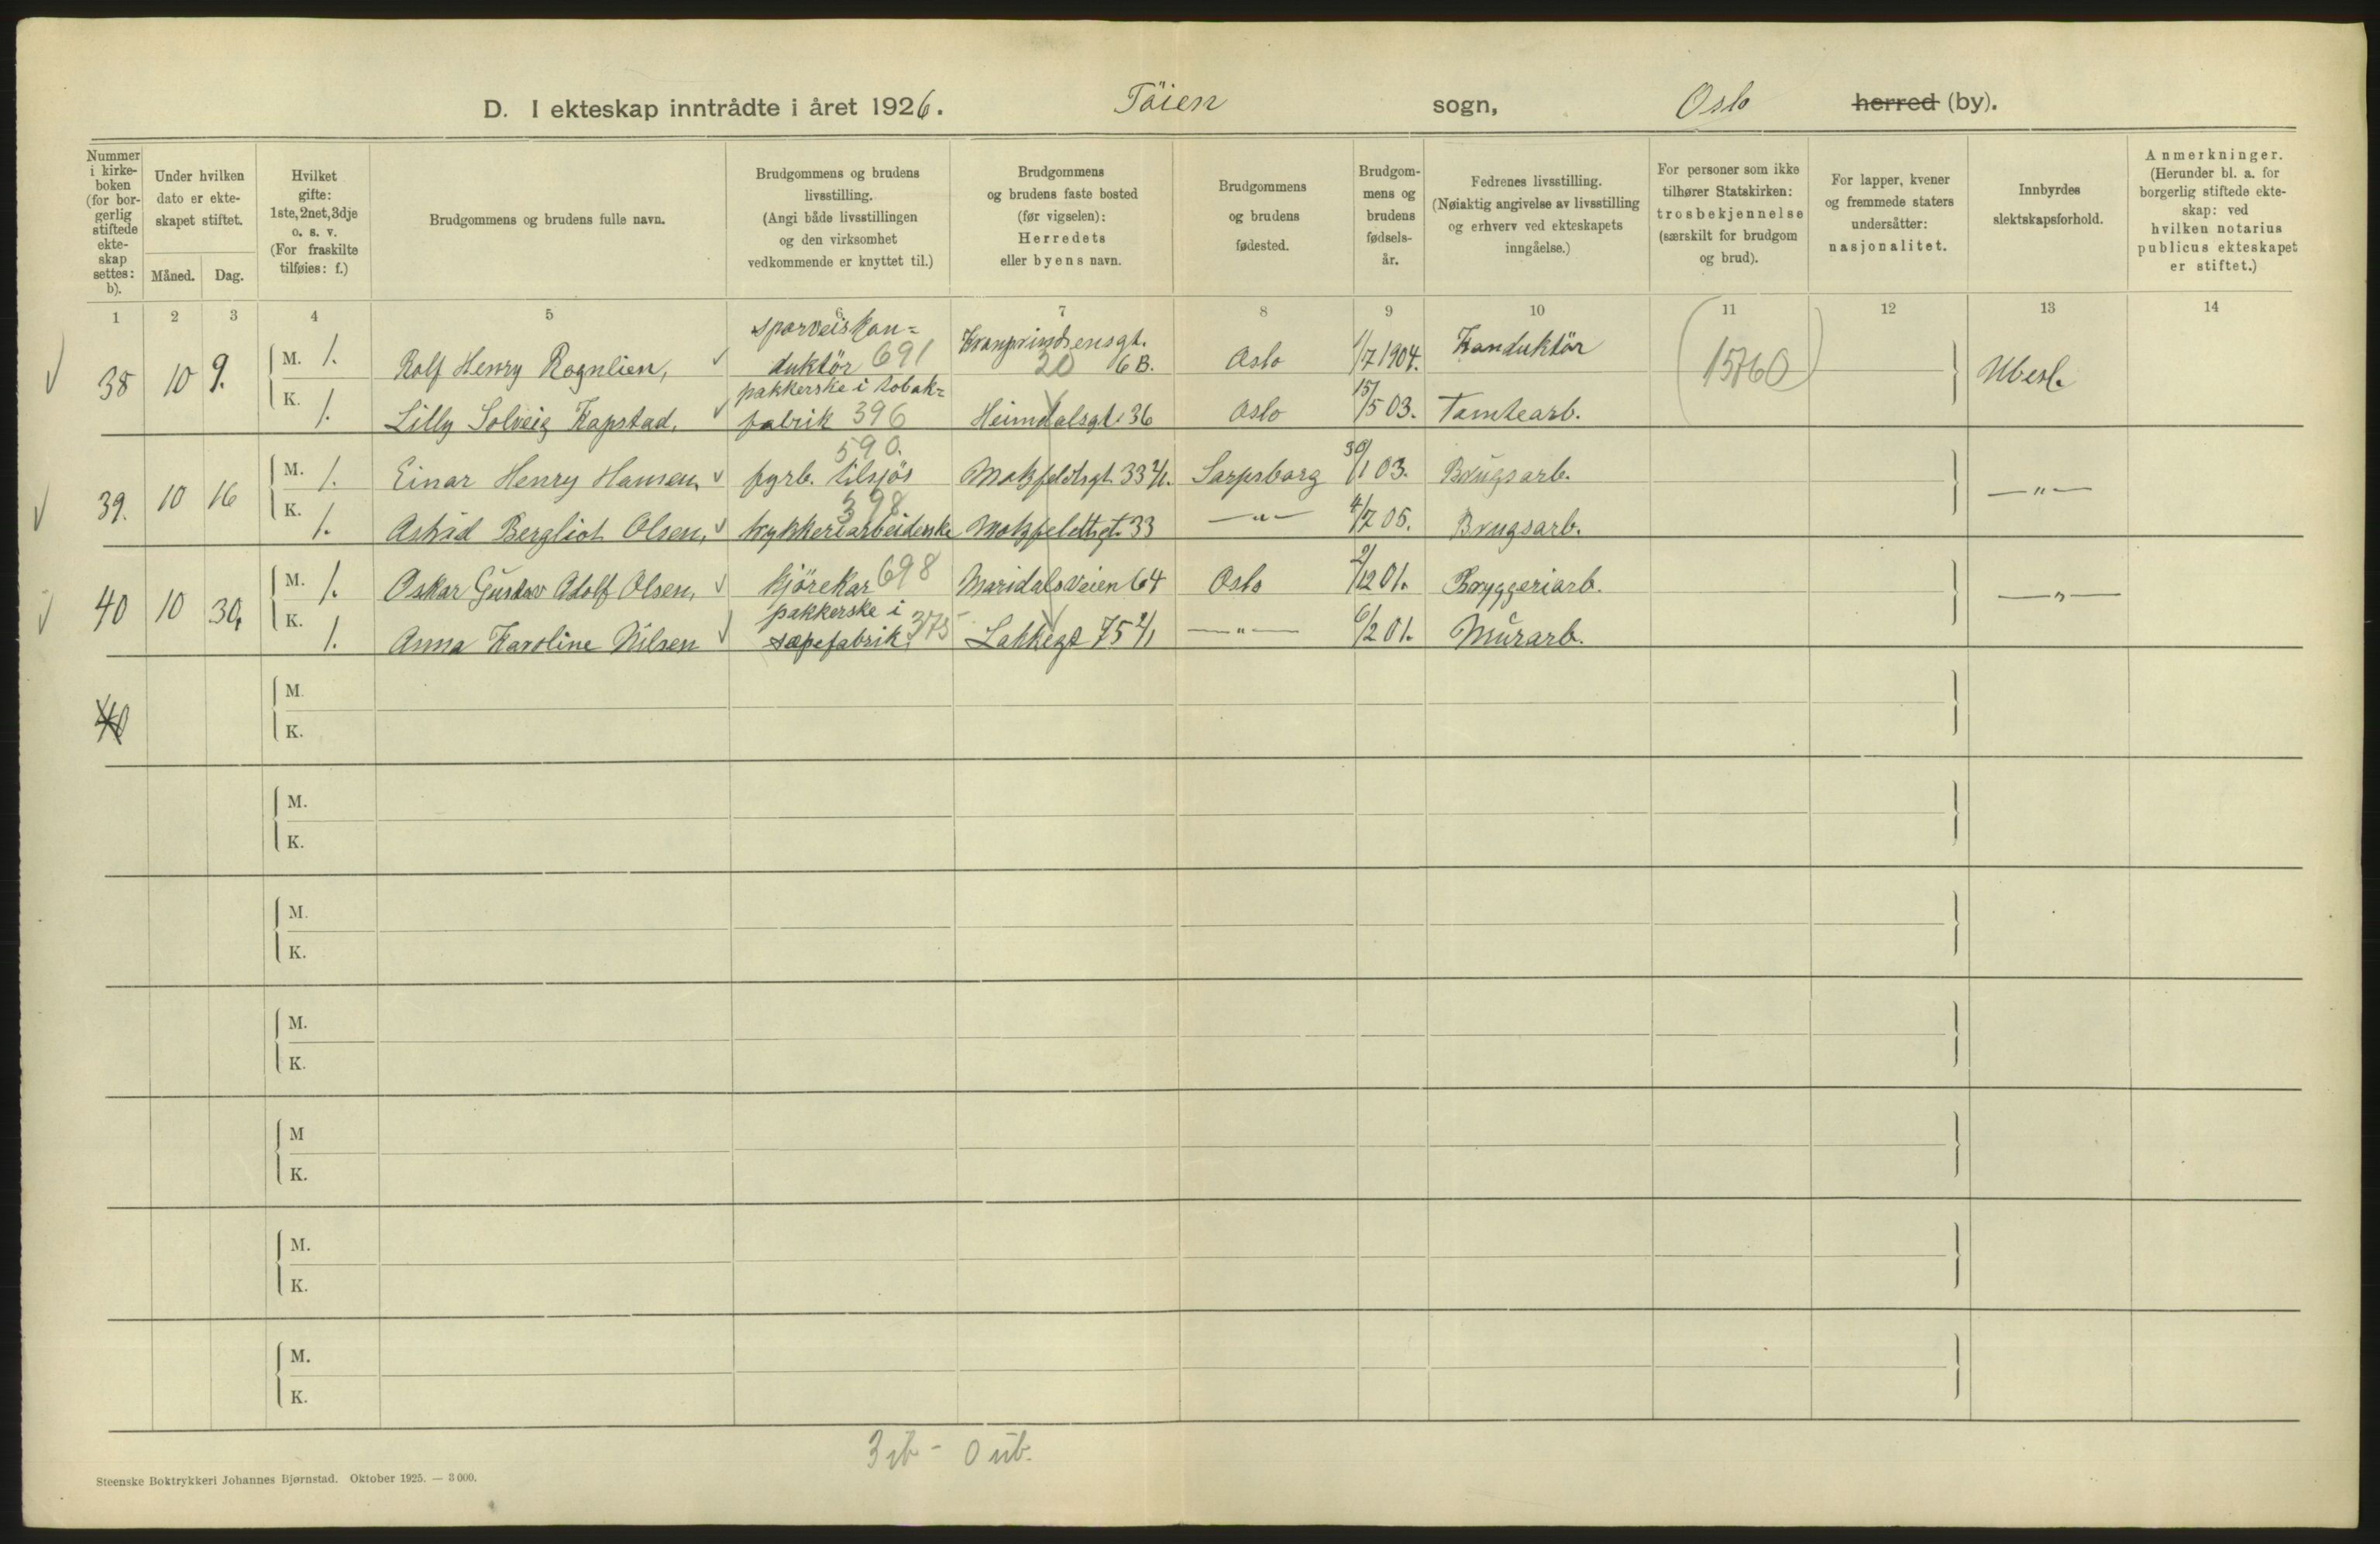 D. I ekteskap inntrådte i året 1926. Töien sogn, Oslo herred (by).
Nummer i kirkeboken (for borgerlig stiftede ekteskap settes: b).
Under hvilken dato er ekteskapet stiftet.
Måned. Dag.
Hvilket gifte: 1ste, 2net, 3dje o. s. v. (For fraskilte tilføies: f.)
Brudgommens og brudens fulle navn.
Brudgommens og brudens livsstilling. (Angi både livsstillingen og den virksomhet vedkommende er knyttet til.)
Brudgommens og brudens faste bosted (før vigselen): Herredets eller byens navn.
Brudgommens og brudens fødested.
Brudgommens og brudens fødselsår.
Fedrenes livsstilling. (Nøiaktig angivelse av livsstilling og erhverv ved ekteskapets inngåelse.)
For personer som ikke tilhører Statskirken: trosbekjennelse (særskilt for brudgom og brud).
For lapper, kvener og fremmede staters undersåtter: nasjonalitet.
Innbyrdes slektskapsforhold.
Anmerkninger. (Herunder bl. a. for borgerlig stiftede ekteskap: ved hvilken notarius publicus ekteskapet er stiftet.)
1 2 3 4 5 6 7 8 9 10 11 12 13 14
38 10 9. M. 1. Rolf Henry Rognlien, sporveiskon=duktör 691 Kronprindsensgt. 20 6B. Oslo 1/7 1904. Konduktör (15760) Ubesl.
K. 1. Lilly Solveig Kapstad, pakkerske i tobak=fabrik 396 Heimdalsgt. 36 Oslo 15/5 03. Tomtearb.
39. 10 16 M. 1. Einar Henry Hansen, fyrb. tilsjös 590. Motzfeldtsgt. 33 2/1. Sarpsborg 30/1 03. Brugsarb. —"—
K. 1. Astrid Bergliot Olsen, trykkeriarbeiderske 398 Motzfeldtsgt. 33 —"— 4/7 05. Brugsarb.
40 10 30, M. 1. Oskar Gustav Adolf Olsen, kjörekar 698 Maridalsveien 64 Oslo 2/12 01. Bryggeriarb. —"—
K. 1. Anna Karoline Nilsen pakkerske i sæpefabrik. 375 Lakkegt 75 2/1 —"— 6/2 01. Murarb.
40 M.
K.
M.
K.
M.
K.
M.
K.
M
K.
M.
K.
M.
K.
3 ib - 0 ub.
Steenske Boktrykkeri Johannes Bjørnstad. Oktober 1925. — 3 000.